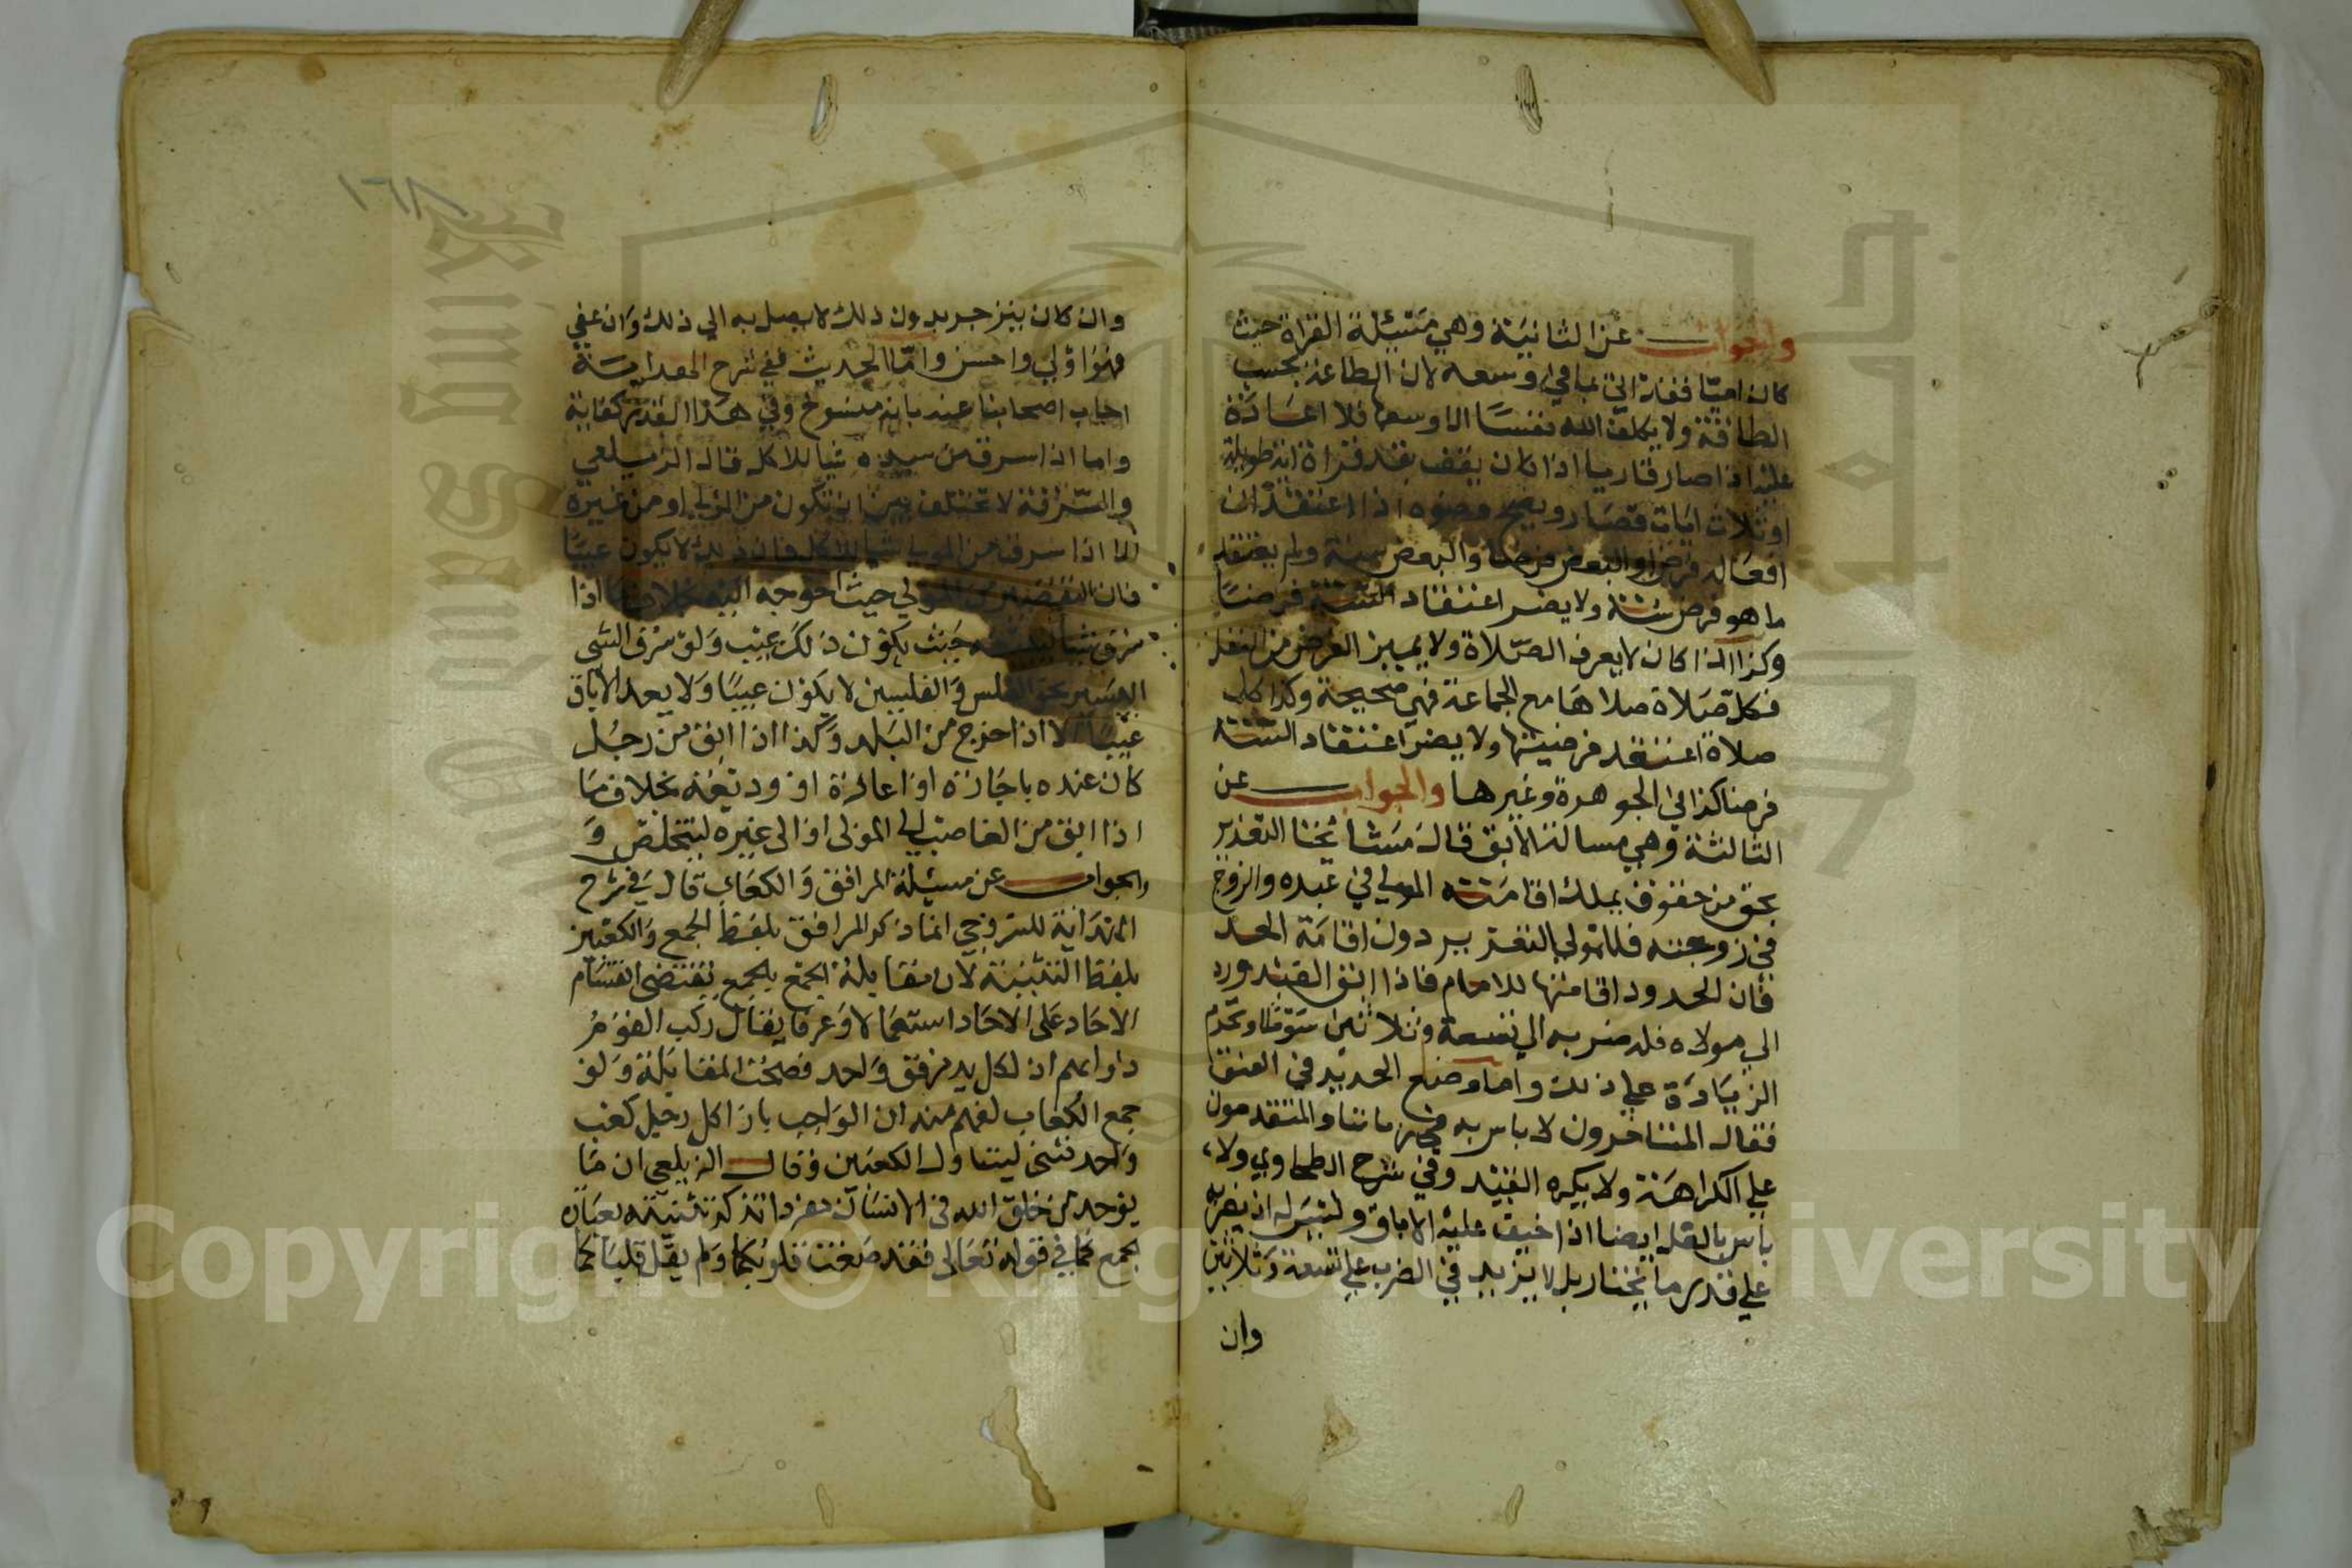 والجواب عن الثانية وهي مسئلة القراة حيث
كان اميا فقد اتي بما في وسعه لان الطاعة بحسب
الطاقة ولا يكلف الله نفسا الا وسعها فلا اعادة
عليه اذا صار قاريا اذا كان يقف بقدر قراة اية طويلة
او ثلاث ايات قصار ويصح وضوه اذا اعتقد ان
افعاله فرض او البعض فرضا والبعض سنة ولم يعتقد
ما هو فرض سنة ولا يضر اعتقاد السنة فرضا
وكذا اذا كان لا يعرف الصلاة ولا يميز الفرض من النفل
فكل صلاة صلاها مع الجماعة فهي صحيحة وكذا كل
صلاة اعتقد فرضيتها ولا يضر اعتقاد السنة
فرضا كذا في الجوهرة وغيرها والجواب عن
الثالثة وهي مسالة الابق قال مشائخنا التعذير
بحق من حقوق بملك اقامته المولي في عبده والزوج
في زوجته فللمولي التعزير دون اقامة الحد
فان الحدود اقامتها للامام فاذا ابق العبد ورد
الي مولاه فله ضربه الي تسعة وثلاثين سوطا وتحرم
الزيادة علي ذلك واما وضع الحديد في العنق
فقال المتاخرون لا باس به في زماننا والمتقدمون
علي الكراهة ولا يكره القيد وفي شرح الطحاوي ولا
باس بالغل ايضا اذا خيف عليه الاباق وليس له ان يضربه
علي قدر ما يختار بل لا يزيد في الضرب علي تسعة وثلاثين
وان
١٦٨
وان كان ينزجر بدون ذلك لا يصل به الي ذلك وان عفي
فهو اولي واحسن واما الحديث ففي شرح الهداية
اجاب اصحابنا عنه بانه منسوخ وفي هذا القدر كفاية
واما اذا سرق من سيده شيا للاكل قال الزيلعي
والسرقة لا تختلف بين ان تكون من المولي او من غيره
الا اذا سرق من المولي شيا للاكل فان ذلك لا يكون عيبا
فان التقصير من المولي حيث احوجه اليه بخلاف ما اذا
سرق شيا ليبيعه حيث يكون ذلك عيب ولو سرق الشي
اليسير نحو الفلس والفلسين لا يكون عيبا ولا يعد الاباق
عيبا الا اذا خرج من البلد وكذا اذا ابق من رجل
كان عنده باجازة او اعارة او وديعة بخلاف ما
اذا ابق من الغاصب الي المولى او الى غيره ليتخلص و
والجواب عن مسئلة المرافق والكعاب قال في شرح
الهداية للسروجي انما ذكر المرافق بلفظ الجمع والكعبين
بلفظ التثنية لان مقابلة الجمع بالجمع تقتضى انقسام
الاحاد على الاحاد استعمالا وعرفا يقال ركب القوم
دوابهم اذ لكل يد مرفق واحد فصحت المقابلة ولو
جمع الكعاب لفهم منه ان الواجب بازا كل رجل كعب
واحد فثنى ليتناول الكعبين وقال الزيلعي ان ما
يوحد من خلق الله في الانسان مفردا تذكر تثنيته بعبارة
الجمع كما في قوله تعالى فقد صغت قلوبكما ولم يقل قلباكما
Copyright © King Saud University